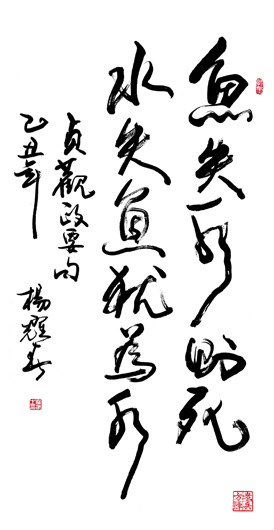 魚失水則死
水失魚猶為水
貞觀政要句
乙丑年
楊耀春